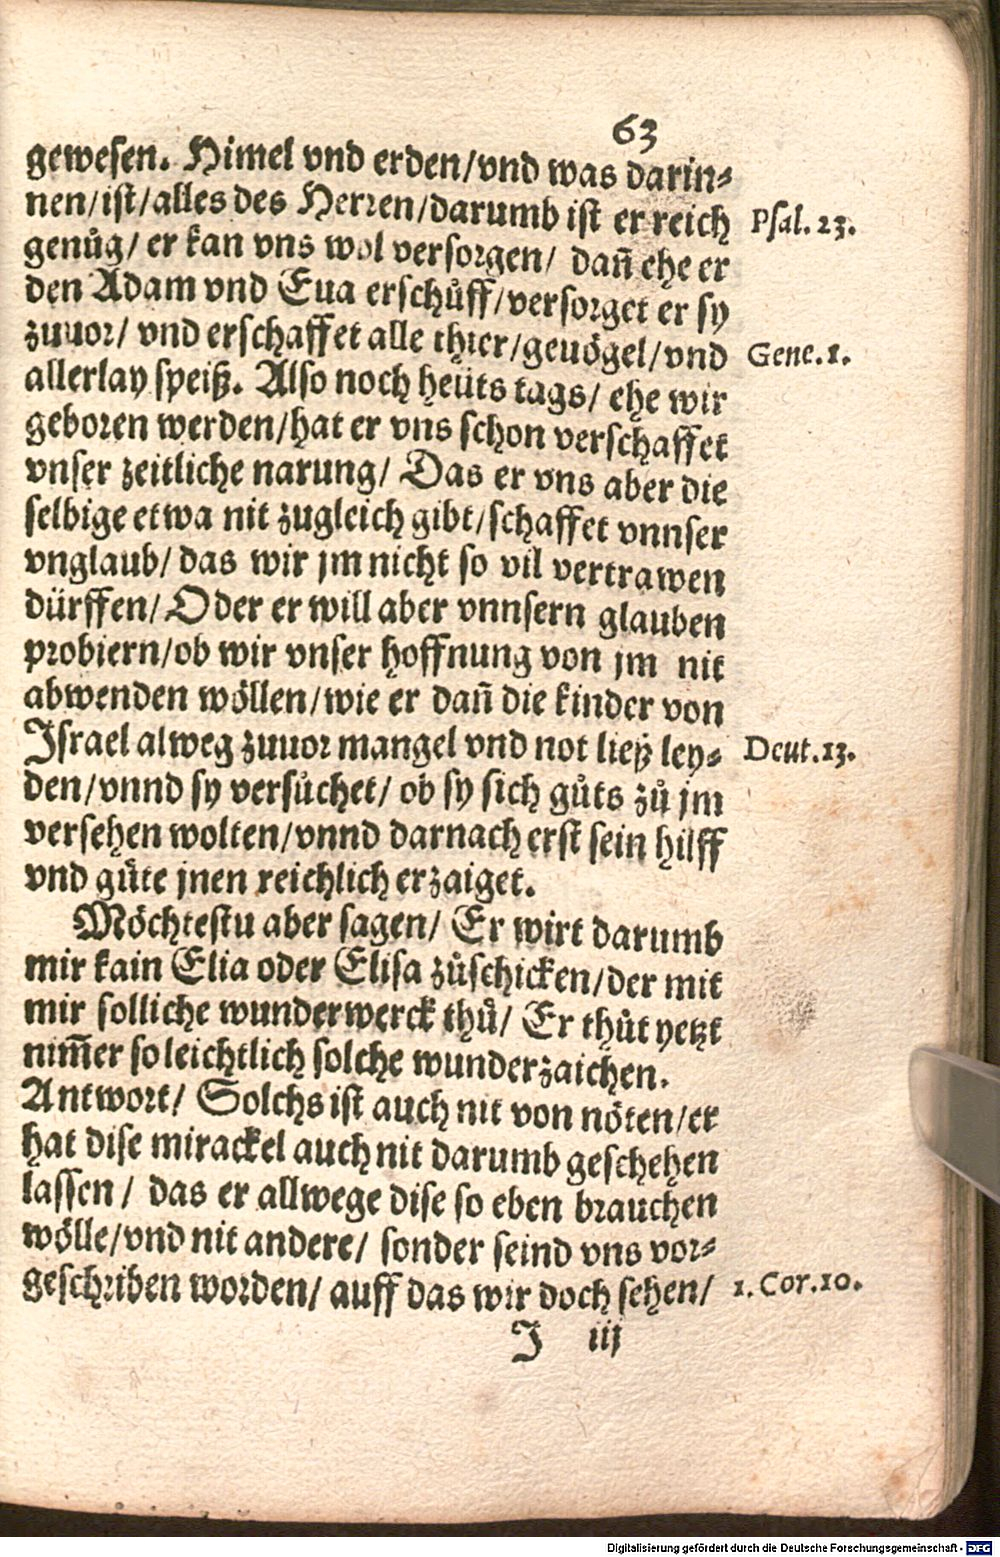 63
gewesen. Himel vnd erden/vnd was darin⸗
nen/ist/alles des Herꝛen/darumb ist er reich
Psal. 23.
genuͦg/ er kan vns wol versorgen/ dañ ehe er
den Adam vnd Eua erschuͦff/versorget er sy
zuuor/ vnd erschaffet alle thier/geuögel/vnd
Gene. 1.
allerlay speiß. Also noch heüts tags/ ehe wir
geboren werden/hat er vns schon verschaffet
vnser zeitliche narung/ Das er vns aber die
selbige etwa nit zugleich gibt/schaffet vnnser
vnglaub/ das wir jm nicht so vil vertrawen
dürffen/ Oder er will aber vnnsern glauben
probiern/ob wir vnser hoffnung von jm nit
abwenden wöllen/wie er dañ die kinder von
Israel alweg zuuor mangel vnd not ließ ley⸗
Deut. 13.
den/vnnd sy versuͦchet/ ob sy sich guͦts zuͦ jm
versehen wolten/vnnd darnach erst sein hilff
vnd guͤte jnen reichlich erzaiget.
Möchtestu aber sagen/ Er wirt darumb
mir kain Elia oder Elisa zuͦschicken/der mit
mir solliche wunderwerck thuͦ/ Er thuͦt yetzt
nim̃er so leichtlich solche wunderzaichen.
Antwort/ Solchs ist auch nit von nöten/er
hat dise mirackel auch nit darumb geschehen
lassen/ das er allwege dise so eben brauchen
wölle/vnd nit andere/ sonder seind vns vor⸗
geschriben worden/ auff das wir doch sehen/
1. Cor. 10.
J iij
Digitalisierung gefördert durch die Deutsche Forschungsgemeinschaft - DFG